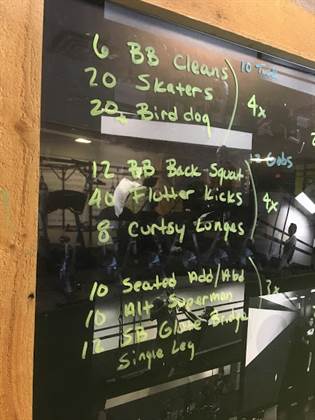 6 BB Cleans
20 Skaters
20 Bird dog
4x
10
12 BB Back Squat
40 Flutter Kicks
8 Curtsy Lunges
4x
10 Seated Add/Abd
10 Alt Superman
12 SB Glute Bridge
Single Leg
3x